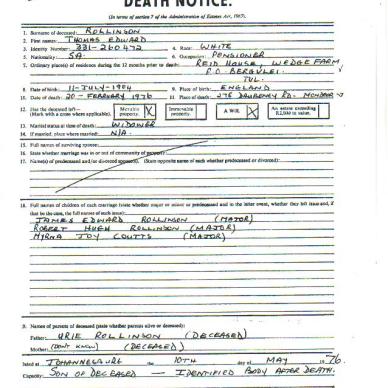 DEATH NOTICE.
(In terms of section 7 of the Administration of Estates Act, 1965).
1. Surname of deceased: ROLLINSON
2. First names: THOMAS EDWARD
3. Identity Number: 331-260472 4. Race: WHITE
5. Nationality: S.A. 6. Occupation: PENSIONER
7. Ordinary place(s) of residence during the 12 months prior to death: REID HOUSE, WEDGE FARM
P.O. BERGVLEI.
TVL.
8. Date of birth: 11-JULY-1904 9. Place of birth: ENGLAND
10. Date of death: 20-FEBRUARY 1976 11. Place of death: 276 DAUBENY RD.
12. Has the deceased left— Movable property. X Immovable property. A Will. X An estate exceeding R2,000 in value.
(Mark with a cross where applicable).
13. Marital status at time of death: WIDOWER
14. If married, place where married: N/A.
15. Full names of surviving spouse:
16. State whether marriage was in or out of community of property:
17. Name(s) of predeceased and/or divorced spouse(s). (State opposite name of each whether predeceased or divorced):
18. Full names of children of each marriage (state whether major or minor or predeceased and in the latter event, whether they left issue and, if
that be the case, the full names of such issue):
JAMES EDWARD ROLLINSON (MAJOR)
ROBERT HUGH ROLLINSON (MAJOR)
MYRNA JOY COUTTS (MAJOR)
9. Names of parents of deceased (state whether parents alive or deceased):
Father: URIE ROLLINSON (DECEASED)
Mother: (DON'T KNOW) (DECEASED)
Dated at JOHANNESBURG the 10TH day of MAY 1976.
Capacity: SON OF DECEASED — IDENTIFIED BODY AFTER DEATH.